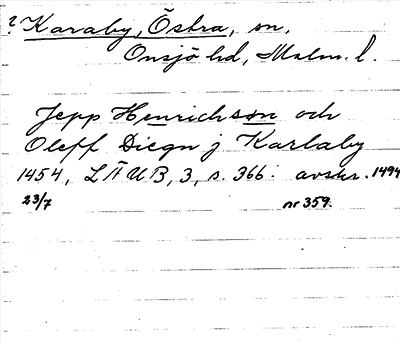 ? Karaby, Östra, sn,
Onsjö hd, Malm. l.
Jepp Henrichson och
Oleff Diegn j Karlaby
1454, LÄUB, 3, s. 366: avskr. 1494
23/7 nr 359.